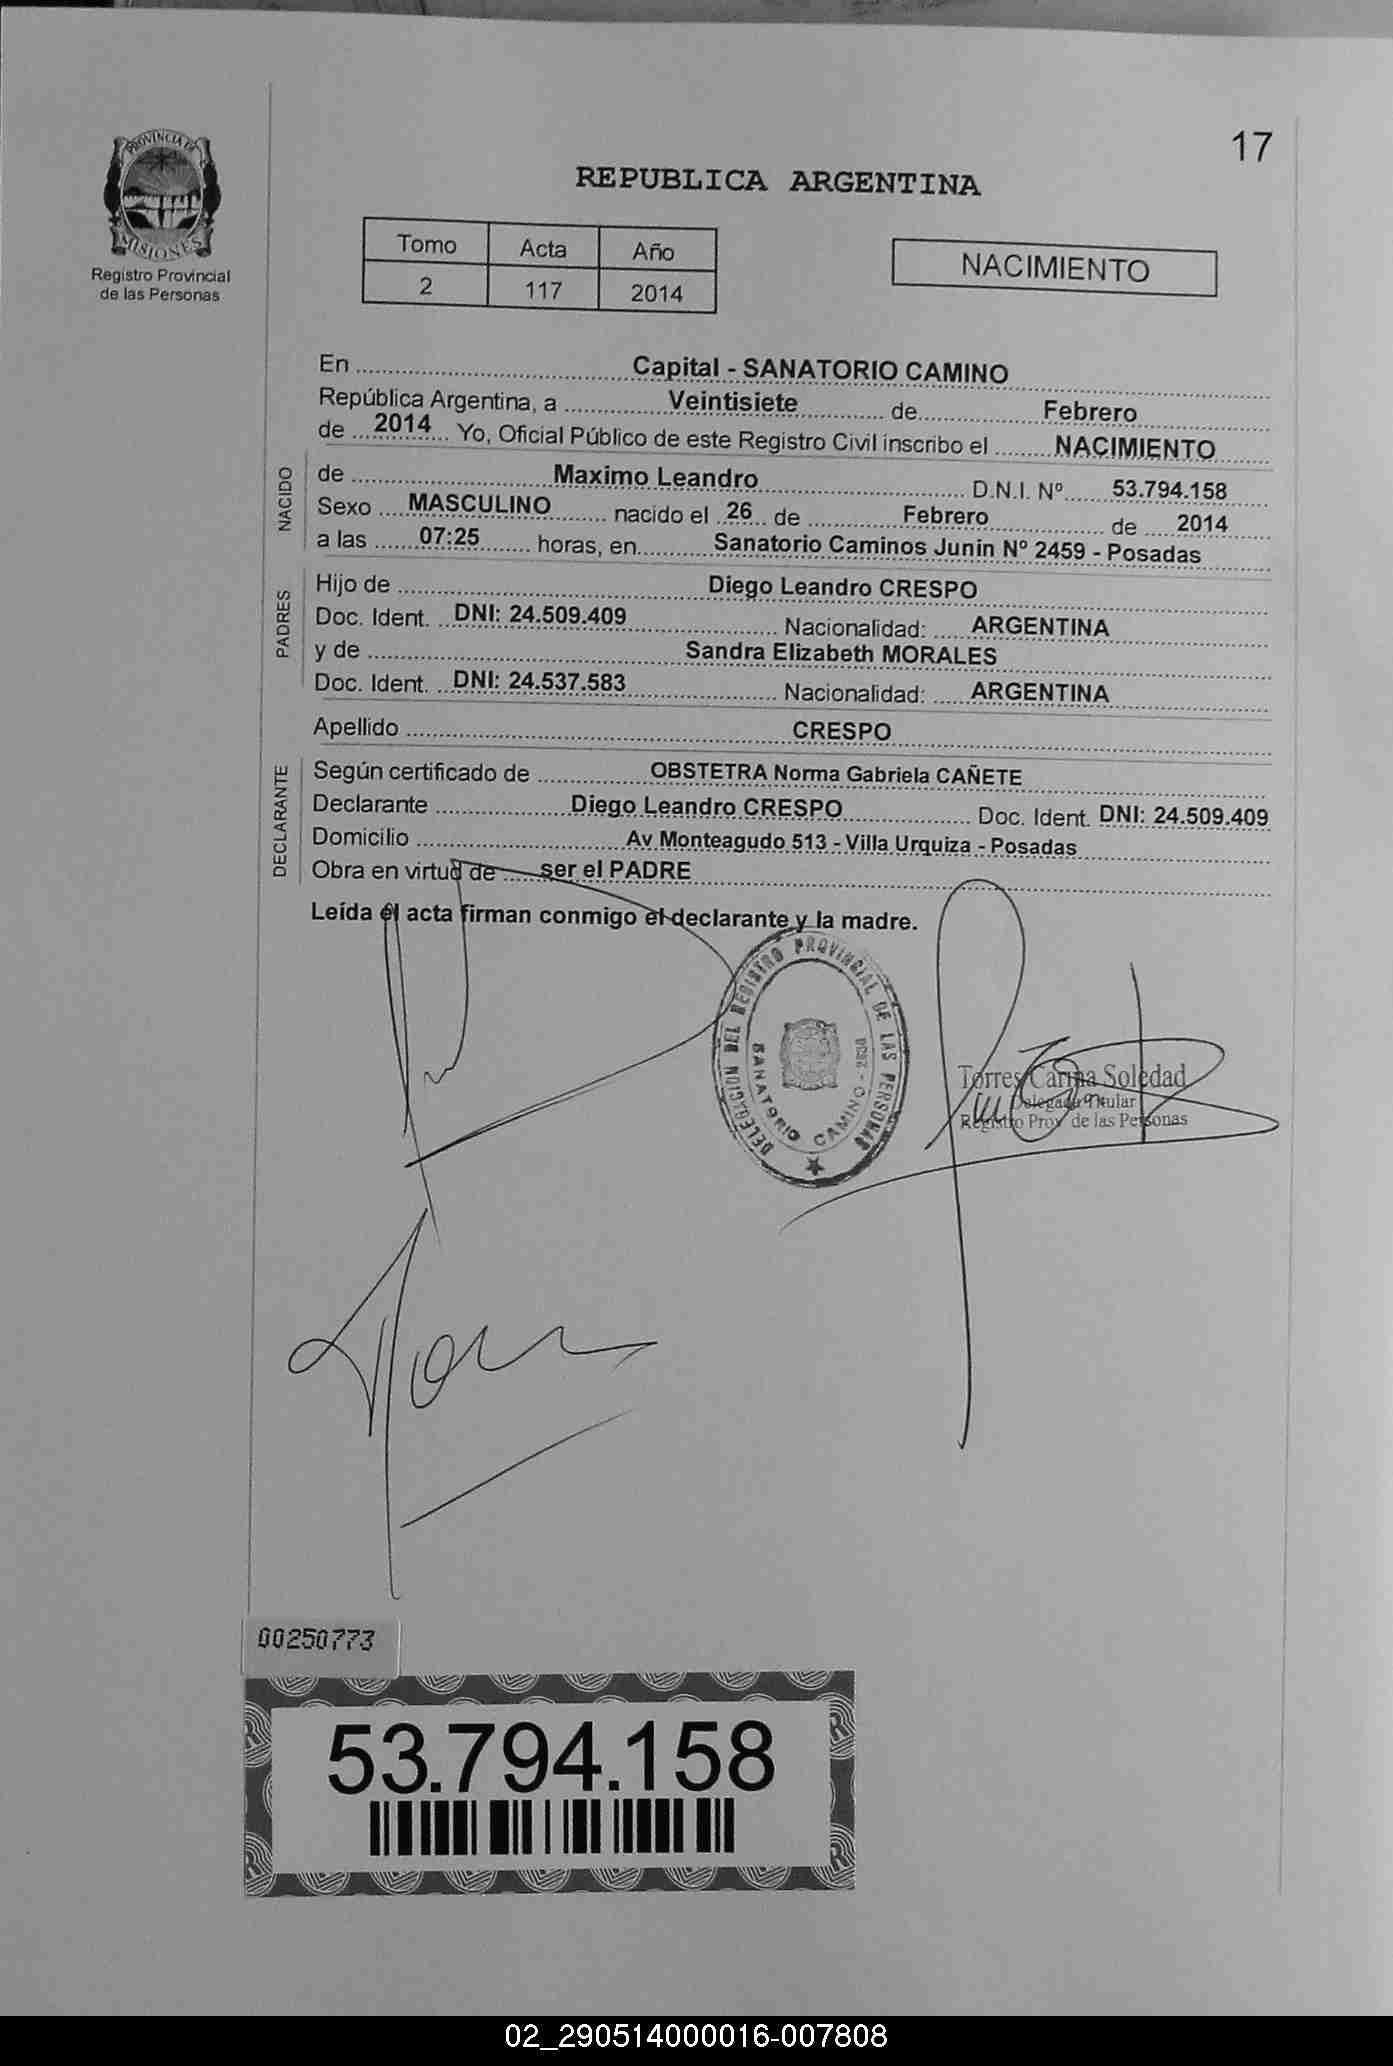 17
PROVINCIA DE
MISIONES
Registro Provincial
de las Personas
REPUBLICA ARGENTINA
Tomo Acta Año
2 117 2014
NACIMIENTO
En Capital - SANATORIO CAMINO
República Argentina, a Veintisiete de Febrero
de 2014 Yo, Oficial Público de este Registro Civil inscribo el NACIMIENTO
NACIDO
de Maximo Leandro D.N.I. Nº 53.794.158
Sexo MASCULINO nacido el 26 de Febrero de 2014
a las 07:25 horas, en Sanatorio Caminos Junin Nº 2459 - Posadas
PADRES
Hijo de Diego Leandro CRESPO
Doc. Ident. DNI: 24.509.409 Nacionalidad: ARGENTINA
y de Sandra Elizabeth MORALES
Doc. Ident. DNI: 24.537.583 Nacionalidad: ARGENTINA
Apellido CRESPO
DECLARANTE
Según certificado de OBSTETRA Norma Gabriela CAÑETE
Declarante Diego Leandro CRESPO Doc. Ident. DNI: 24.509.409
Domicilio Av Monteagudo 513 - Villa Urquiza - Posadas
Obra en virtud de ser el PADRE
Leída el acta firman conmigo el declarante y la madre.
DELEGACION DEL REGISTRO PROVINCIAL DE LAS PERSONAS
SANATORIO CAMINO - 2830
Torres Carina Soledad
Delegada Titular
Registro Prov de las Personas
00250773
53.794.158
02_290514000016-007808